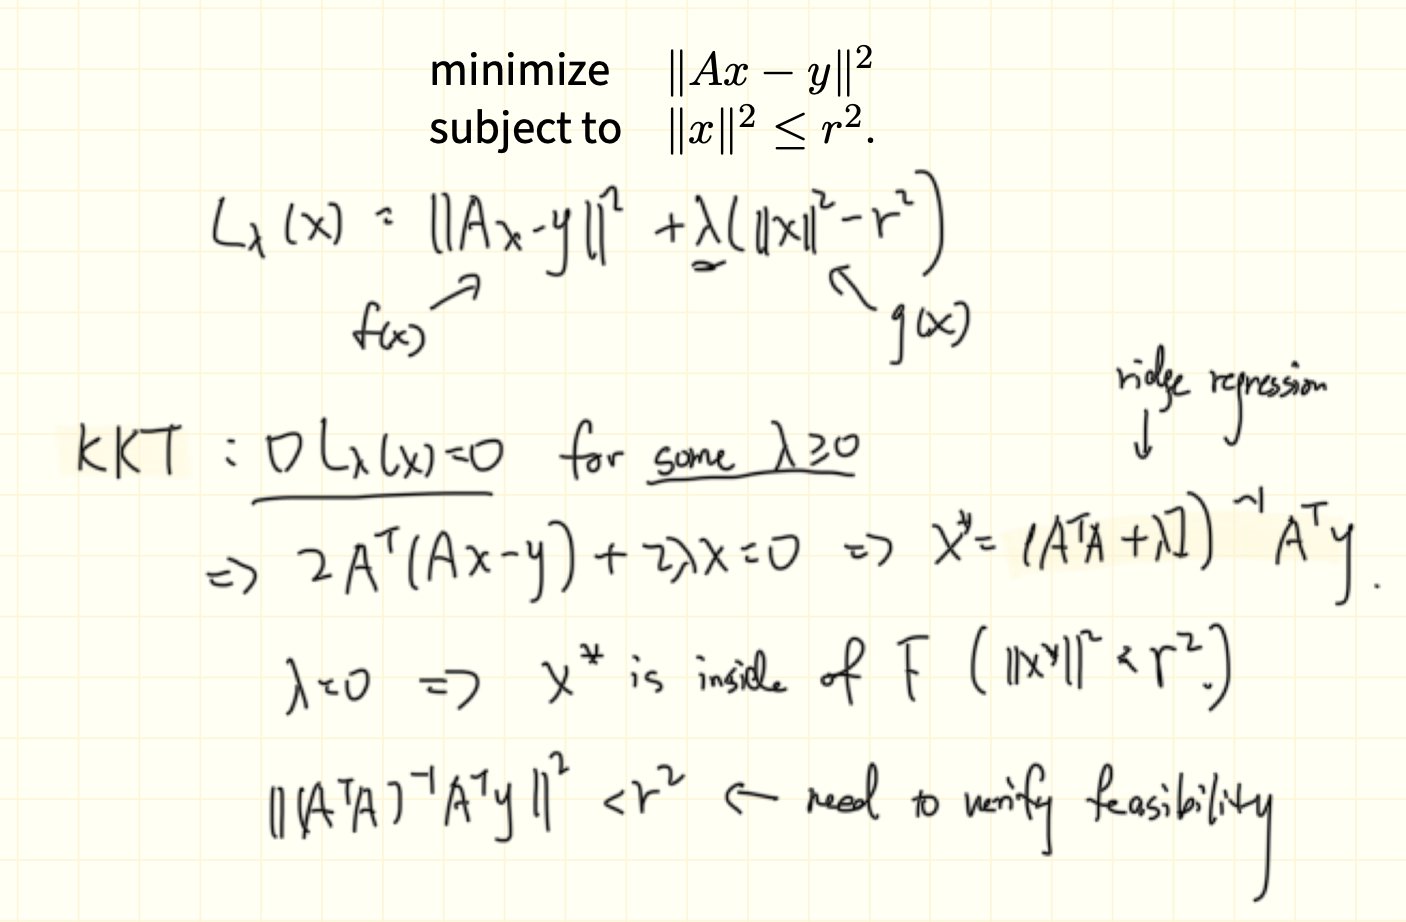 minimize ‖Ax − y‖²
subject to ‖x‖² ≤ r².
L_λ(x) = ||Ax-y||² + λ(||x||² - r²)
f(x)
g(x)
ridge regression
KKT : ∇L_λ(x)=0 for some λ≥0
=> 2A^T(Ax-y) + 2λx=0 => x*= (A^TA + λI)^-1 A^Ty.
λ=0 => x* is inside of F (||x*||² < r².)
||(A^TA)^-1 A^Ty||² < r² ← need to verify feasibility